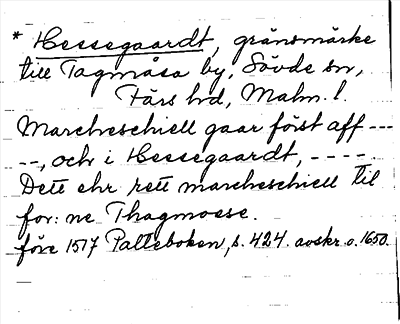 * Hessegaardt, gränsmärke
till Tagmåsa by, Sövde sn,
Färs hd, Malm. l.
Marcheschiell gaar först aff ---
--, och i Hessegaardt, ----
Dett ehr rett marcheschiell til
for: ne Thagmosse.
före 1517 Palteboken, s. 424. avskr. o. 1650.